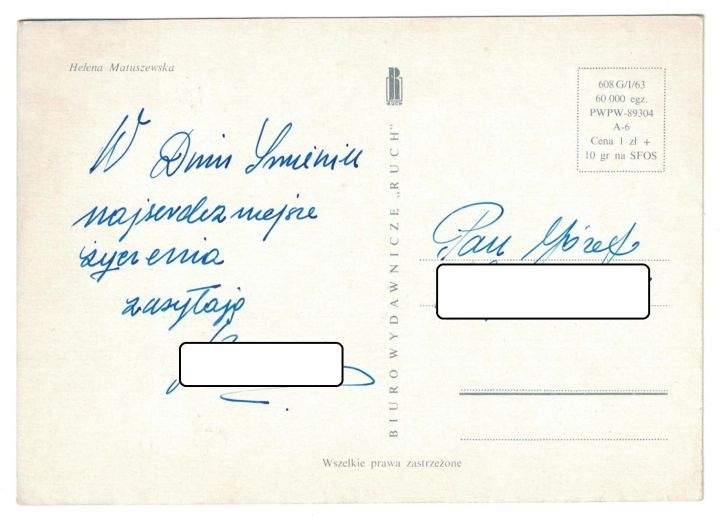 Helena Matuszewska
608 G/I/63
60 000 egz.
PWPW-89304
A-6
Cena 1 zł +
10 gr na SFOS
W Dniu Imienin
najserdeczniejsze
życzenia
zasyłają
BIURO WYDAWNICZE „RUCH"
Pan Józef
Wszelkie prawa zastrzeżone